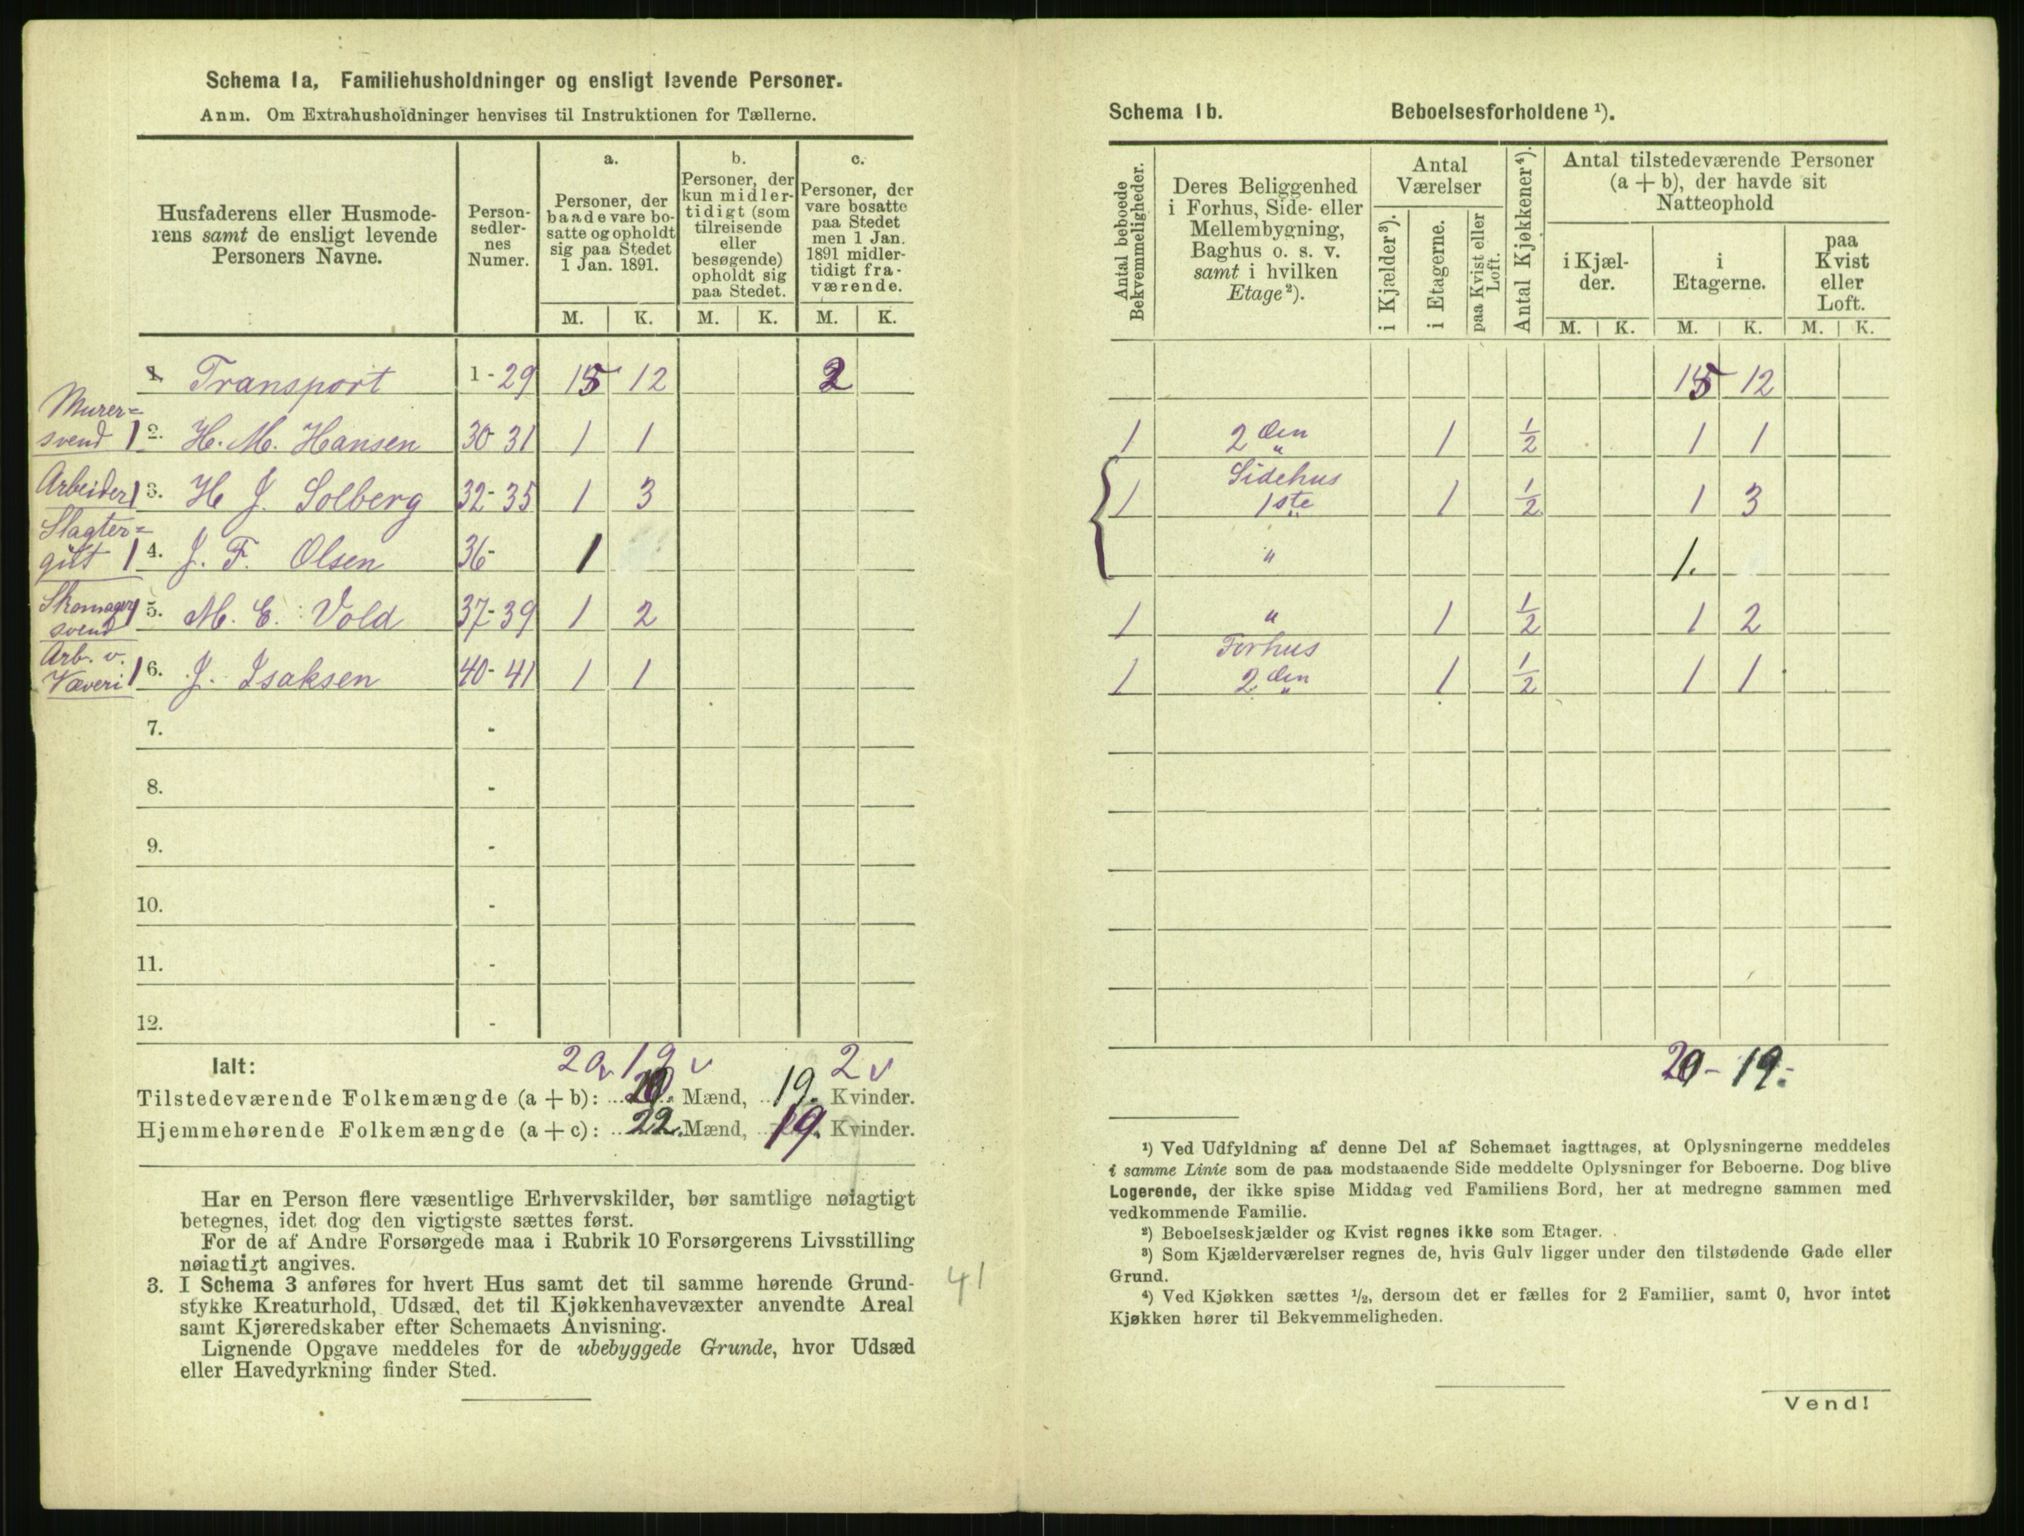 Schema 1a, Familiehusholdninger og ensligt levende Personer.
Anm. Om Extrahusholdninger henvises til Instruktionen for Tællerne.
Husfaderens eller Husmoderens samt de ensligt levende Personers Navne.
Personsedlernes Numer.
a. Personer, der baade vare bosatte og opholdt sig paa Stedet 1 Jan. 1891.
b. Personer, der kun midlertidigt (som tilreisende eller besøgende) opholdt sig paa Stedet.
c. Personer, der vare bosatte paa Stedet men 1 Jan. 1891 midlertidigt fraværende.
M. K. M. K. M. K.
1. Transport 1-29 15 12 2
Murersvend 1 2. H. M. Hansen 30-31 1 1
Arbeider 1 3. H J. Solberg 32-35 1 3
Slagtergut 1 4. J. F. Olsen 36- 1
Skomagersvend 1 5. M. E. Vold 37-39 1 2
Arb. v. Væveri 1 6. J. Isaksen 40-41 1 1
7. -
8. -
9. -
10. -
11. -
12. -
Ialt: 20 v 19 v 2 v
Tilstedeværende Folkemængde (a + b): 20. Mænd, 19. Kvinder.
Hjemmehørende Folkemængde (a + c): 22. Mænd, 19. Kvinder.
Har en Person flere væsentlige Erhvervskilder, bør samtlige nøiagtigt
betegnes, idet dog den vigtigste sættes først.
For de af Andre Forsørgede maa i Rubrik 10 Forsørgerens Livsstilling
nøiagtigt angives.
3. I Schema 3 anføres for hvert Hus samt det til samme hørende Grund-
stykke Kreaturhold, Udsæd, det til Kjøkkenhavevæxter anvendte Areal
samt Kjøreredskaber efter Schemaets Anvisning.
Lignende Opgave meddeles for de ubebyggede Grunde, hvor Udsæd
eller Havedyrkning finder Sted.
41
Schema 1b. Beboelsesforholdene ¹).
Antal beboede Bekvemmeligheder.
Deres Beliggenhed i Forhus, Side- eller Mellembygning, Baghus o. s. v. samt i hvilken Etage²).
Antal Værelser
i Kjælder³).
i Etagerne.
paa Kvist eller Loft.
Antal Kjøkkener⁴).
Antal tilstedeværende Personer (a + b), der havde sit Natteophold
i Kjælder.
i Etagerne.
paa Kvist eller Loft.
M. K. M. K. M. K.
15 12
1 2 den " 1 1/2 1 1
Sidehus
1 1ste " 1 1/2 1 3
" 1.
1 " 1 1/2 1 2
Forhus
1 2 den " 1 1/2 1 1
20- 19.-
¹) Ved Udfyldning af denne Del af Schemaet iagttages, at Oplysningerne meddeles
i samme Linie som de paa modstaaende Side meddelte Oplysninger for Beboerne. Dog blive
Logerende, der ikke spise Middag ved Familiens Bord, her at medregne sammen med
vedkommende Familie.
²) Beboelseskjælder og Kvist regnes ikke som Etager.
³) Som Kjælderværelser regnes de, hvis Gulv ligger under den tilstødende Gade eller
Grund.
⁴) Ved Kjøkken sættes ¹/₂, dersom det er fælles for 2 Familier, samt 0, hvor intet
Kjøkken hører til Bekvemmeligheden.
Vend!